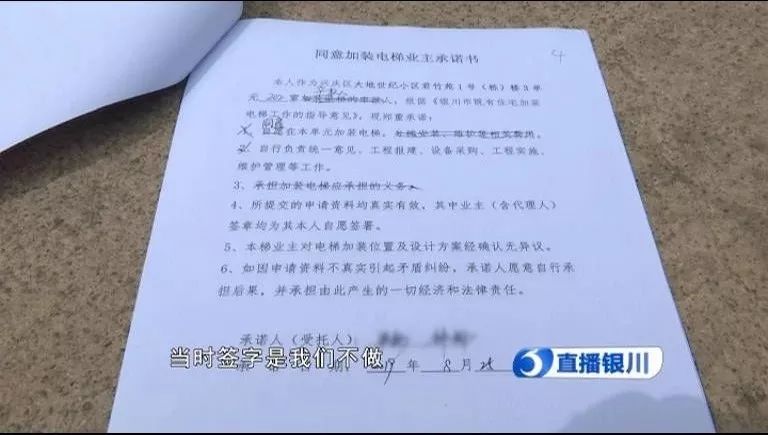 同意加装电梯业主承诺书
4
本人作为兴庆区大地世纪小区君竹苑1号(栋)楼3单
元 202 室
人,根据《银川市既有住宅加装
电梯工作的指导意见》,现郑重承诺:
在本单元加装电梯,
2、自行负责统一意见、工程报建、设备采购、工程实施、
维护管理等工作。
3、承担加装电梯应承担的义务。
4、所提交的申请资料均真实有效,其中业主(含代理人)
签章均为其本人自愿签署。
5、本梯业主对电梯加装位置及设计方案经确认无异议。
6、如因申请资料不真实引起矛盾纠纷,承诺人愿意自行承
担后果,并承担由此产生的一切经济和法律责任。
承诺人(受托人)
当时签字是我们不做
19 年 8 月
3 直播银川